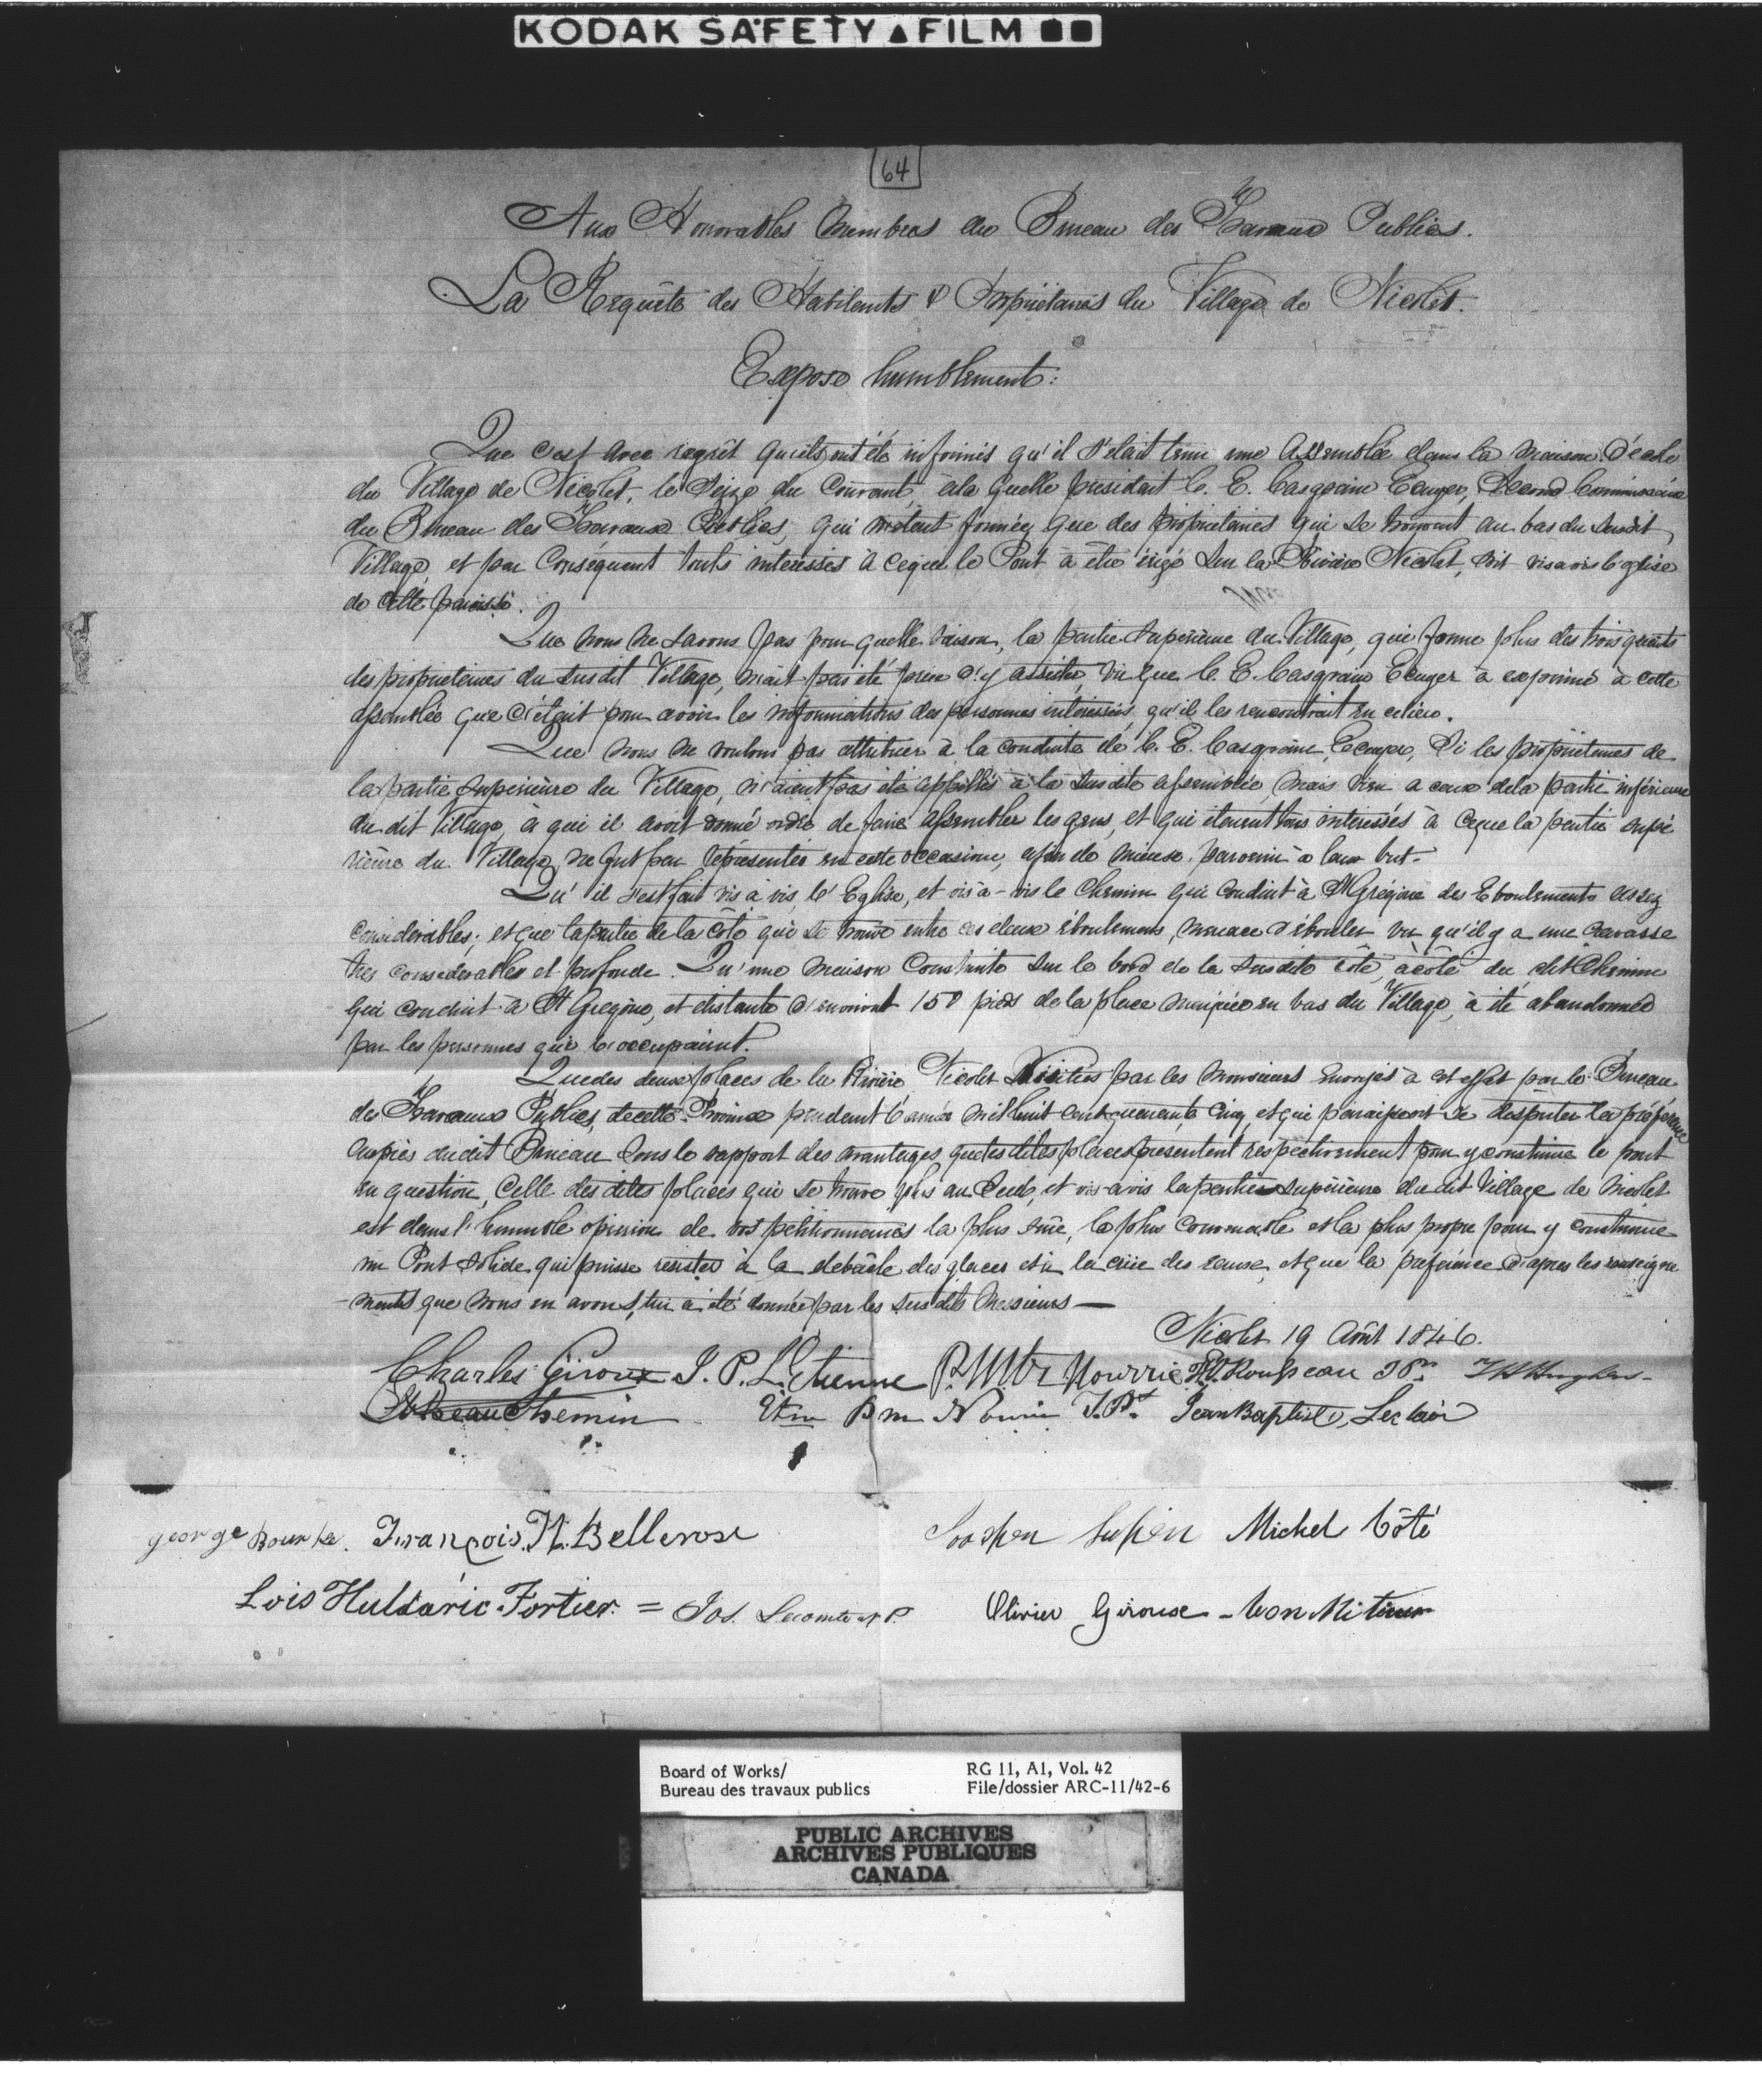 KODAK SAFETY FILM
64
Aux Honorables Membres du Bureau des Travaux Publics.
La Requête des Habitants & Propriétaires du Village de Nicolet.
Expose humblement:
Que c'est avec regrêt qu'ils ont été informés qu'il s'était tenu une Assemblée dans la maison d'école
du Village de Nicolet, le Seize du Courant, à la quelle présidait C. E. Casgrain Ecuyer, Second Commissaire
du Bureau des Travaux Publics, qui n'etait formée que des propriétaires qui se trouvent au bas du susdit
Village, et par Conséquent touts interessés à ceque le Pont à être érigé sur la Rivière Nicolet, soit vis à vis l'eglise
de cette paroisse.
Que nous ne savons pas pour quelle raison, la partie supérieure du Village, qui forme plus des trois quarts
des propriétaires du susdit Village, n'ait pas été priée d'y assister, vu que C. E. Casgrain Ecuyer a exprimé à cette
assemblée que c'était pour avoir les informations des personnes intéressées, qu'il les rencontrait en ce lieu.
Que nous ne voulons pas attribuer à la conduite de C. E. Casgrain, Ecuyer, Si les propriétaires de
la partie supérieure du Village, n'aient pas été appellés à la susdite assemblée, mais bien a ceux dela partie inférieure
du dit Village, à qui il avoit donné ordre de faire assembler les gens, et qui étaient tous interessés à ceque la partie supé
rieure du Village, ne fut pas représentée en cette occasion, afin de mieux parvenir à leur but.
Qu'il s'est fait vis à vis l'Eglise, et vis à-vis le Chemin qui conduit à St Grégoire des Eboulements assez
considerables; et que la partie de la côte qui se trouve entre ces deux éboulemens, menace d'ébouler vu qu'il y a une crevasse
très considerable et profonde. Qu'une maison Construite sur le bord de la susdite côte, à côté du dit Chemin
qui conduit à St Grégoire, et distante d'environt 150 pieds de la place marquée en bas du Village, à été abandonnée
par les personnes qui l'occupaient.
Que des deux places de la Rivière Nicolet Visitées par les Monsieurs envoyés à cet effet par le Bureau
des Travaux Publics, de cette Province pendant l'année mil huit cent quarante cinq, et qui paraissent se disputer la préférence
auprès dudit Bureau sous le rapport des avantages que les dites places presentent respectivement pour y construire le pont
en question, Celle des dites places qui se trouve plus au Sud, et vis-avis la partie supérieure du dit Village de Nicolet
est dans l'humble opinion de vos petitionnaires la plus sûre, la plus convenable et la plus propre pour y construire
un Pont solide qui puisse résister à la débâcle des glaces et à la crüe des eaux, et que la préférence d'après les renseigne
-ments que nous en avons, lui a été donnée par les susdits Messieurs—
Nicolet 19 Août 1846.
Charles Giroux J. P. L. Etienne Nourrie
Beauchemin J. Bt. Jean Baptiste Leclair
george Bourke. François. H. Bellerose Michel Côté
Lois Huldaric Fortier = Jos. Lecomte N.P. Olivier Giroux
Board of Works/ RG 11, A1, Vol. 42
Bureau des travaux publics File/dossier ARC-11/42-6
PUBLIC ARCHIVES
ARCHIVES PUBLIQUES
CANADA